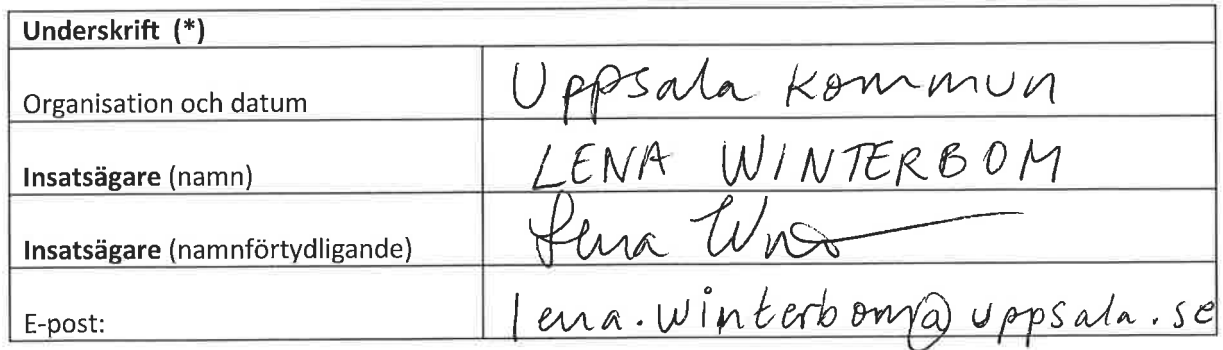 Underskrift (*)
Organisation och datum Uppsala kommun
Insatsägare (namn) LENA WINTERBOM
Insatsägare (namnförtydligande) Lena
E-post: lena.winterbom@uppsala.se